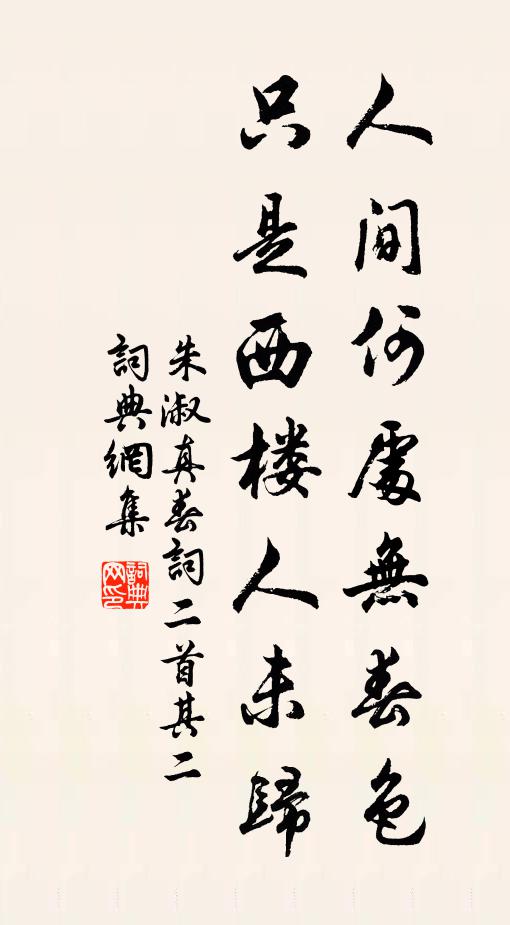 人間何處無春色
只是西楼人未歸
朱淑真春詞二首其二
詞典網集
詞典网印